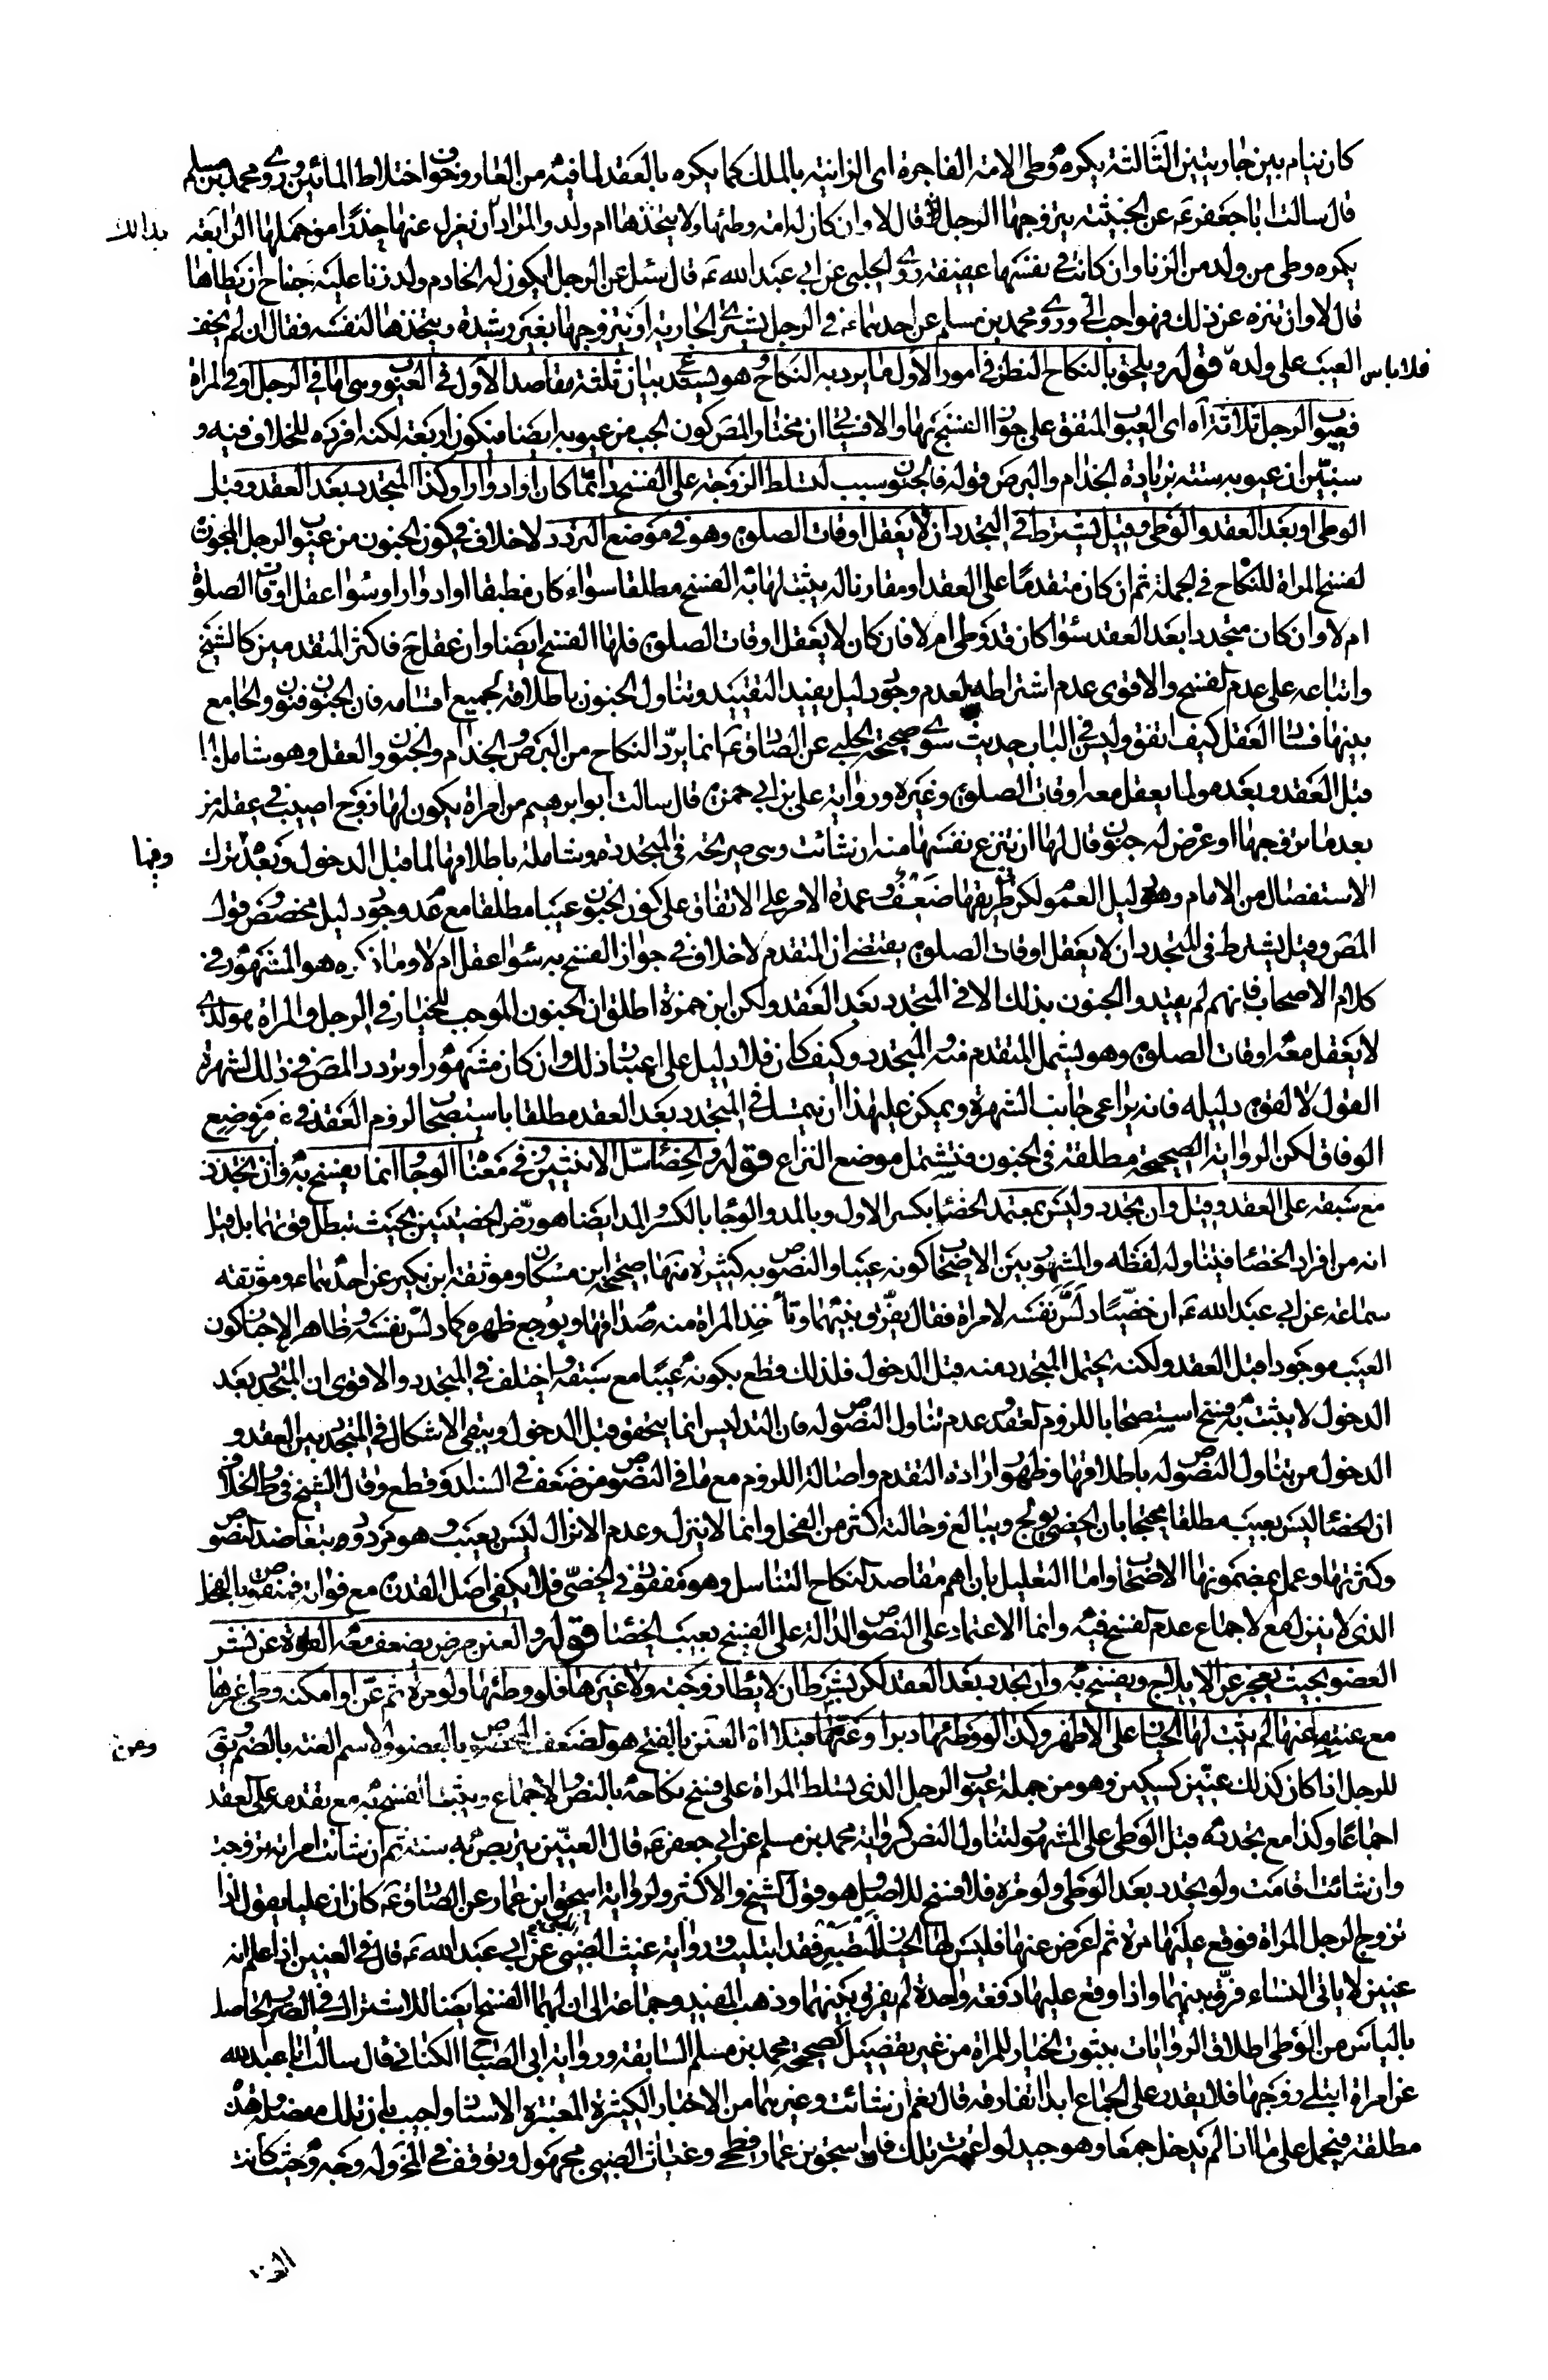 كان ينام بين جاريتين الثالثة يكره وطى الامة الفاجرة اى الزانية بالملك كما يكره بالعقد لما فيه من العار وخوف اختلاط المائين وروى محمد بن مسلم
قال سالت ابا جعفر ع عن الخبيثة يتزوجها الرجل قال لا وان كان له امة وطئها ولا يتخذها ام ولد والمراد ان يعزل عنها حذرا من حملها الرابعة
يكره وطى من ولد من الزنا وان كانت في نفسها عفيفة روى الحلبى عن ابي عبد الله ع قال سئل عن الرجل يكون له الخادم ولد زنا عليه جناح ان يطاها
قال لا وان تنزه عن ذلك فهو احب الى وروى محمد بن مسلم عن احدهما ع في الرجل يشترى الجارية او يتزوجها بغير رشدة ويتخذها لنفسه فقال ان لم يخف
العيب على ولده فلا باس قوله ويلحق بالنكاح النظر في امور الاول ما يرد به النكاح وهو يستدعى بيان ثلثة مقاصد الاول في العيوب وهى اما في الرجل او في المراة
فعيوب الرجل ثلاثة آه اى العيوب المتفق على جواز الفسخ بها والا فسياتى ان مختار المص كون الجب من عيوبه ايضا فيكون اربعة لكنه افرده للخلاف فيه و
سنبين ان عيوبه ستة بزيادة الجذام والبرص قوله فالجنون سبب لتسلط الزوجة على الفسخ دائما كان او ادوارا وكذا المتجدد بعد العقد وقبل
الوطى او بعد العقد والوطى وقيل يشترط في المتجدد ان لا يعقل اوقات الصلوة وهو في موضع التردد لا خلاف في كون الجنون من عيوب الرجل المجوزة
لفسخ المراة للنكاح في الجملة ثم ان كان متقدما على العقد او مقارنا له يثبت لها به الفسخ مطلقا سواء كان مطبقا او ادوارا وسواء عقل اوقات الصلوة
ام لا وان كان متجددا بعد العقد سواء كان قد وطى ام لا فان كان لا يعقل اوقات الصلوة فلها الفسخ ايضا وان عقل ح فاكثر المتقدمين كالشيخ
واتباعه على عدم الفسخ والاقوى عدم اشتراطه لعدم وجود دليل يفيد التقييد وتناول الجنون باطلاقه لجميع اقسامه فان الجنون فنون والجامع
بينها فساد العقل كيف اتفق وليس في الباب حديث سوى صحيحة الحلبى عن الصادق ع انما يرد النكاح من البرص والجذام والجنون والعقل وهو شامل لما
قبل العقد وبعده ولما يعقل معه اوقات الصلوة وغيره ورواية على بن ابي حمزة قال سالت ابو ابرهيم من امراة يكون لها زوج اصيب في عقله من
بعد ما تزوجها او عرض له جنون قال لها ان تنزع نفسها منه ان شائت وهى صريحة في المتجدد وشاملة باطلاقها لما قبل الدخول وبعده وفيها ترك
الاستفصال من الامام وهو دليل العموم لكن طريقها ضعيف وعمدة الامر على الاتفاق على كون الجنون عيبا مطلقا مع عدم وجود دليل مخصص وقول
المص وقيل يشترط في المتجدد ان لا يعقل اوقات الصلوة يقتضى ان المتقدم لا خلاف في جواز الفسخ به سواء عقل ام لا وما ذكره هو المشهور في
كلام الاصحاب فانهم لم يقيدوا الجنون بذلك الا في المتجدد بعد العقد ولكن ابن حمزة اطلق ان الجنون الموجب للخيار في الرجل والمراة هو الذى
لا يعقل معه اوقات الصلوة وهو يشمل المتقدم منه والمتجدد وكيف كان فلا دليل على اعتبار ذلك وان كان مشهورا وتردد المص في ذلك لشهرة
القول لا لقوة دليله فانه يراعى جانب الشهرة ويمكن على هذا ان يتمسك في المتجدد بعد العقد مطلقا باستصحاب لزوم العقد في غير موضع
الوفاق لكن الرواية الصحيحة مطلقة في الجنون فتشتمل موضع النزاع قوله والخصاء سل الانثيين وفي معناه الوجاء انما يفسخ به وان تجدد
مع سبقه على العقد وقيل وان تجدد وليس بمعتمد الخصاء بكسر الاول وبالمد والوجاء بالكسر والمد ايضا هو رض الخصيتين بحيث تبطل قوتهما بل قيل
انه من افراد الخصاء فيتناوله لفظه والمشهور بين الاصحاب كونه عيبا والنصوص به كثيرة منها صحيحة ابن مسكان وموثقة ابن بكير عن احدهما ع وموثقة
سماعة عن ابي عبد الله ع ان خصيا دلس نفسه لامراة فقال يفرق بينهما وتاخذ المراة منه صداقها ويوجع ظهره كما دلس نفسه وظاهر الاخبار كون
العيب موجودا قبل العقد ولكنه يحتمل المتجدد منه قبل الدخول فلذلك قطع بكونه عيبا مع سبقه واختلف في المتجدد والاقوى ان المتجدد بعد
الدخول لا يثبت به فسخ استصحابا للزوم العقد وعدم تناول النصوص له فان التدليس انما يتحقق قبل الدخول ويبقى الاشكال في المتجدد بين العقد و
الدخول من تناول النصوص له باطلاقها وظهور ارادة التقدم واصالة اللزوم مع ما في النصوص من ضعف في السند وقطع وقال الشيخ في ط والخلاف
ان الخصاء ليس بعيب مطلقا محتجا بان الخصى يولج ويبالغ وحالته اكثر من الفحل وانما لا ينزل وعدم الانزال ليس بعيب وهو مردود بتعاضد النصوص
وكثرتها وعمل بمضمونها الاصحاب واما التعليل بان اهم مقاصد النكاح التناسل وهو مفقود في الخصى فلا يكفى اصل القدرة مع فواته فمنقوض بالفحل
الذى لا ينزل مع الاجماع عدم الفسخ فيه وانما الاعتماد على النصوص الدالة على الفسخ بعيب الخصاء قوله والعنن مرض يضعف معه القوة عن نشر
العضو بحيث يعجز عن الايلاج ويفسخ به وان تجدد بعد العقد لكن بشرط ان لا يطا زوجته ولا غيرها فلو وطئها ولو مرة ثم عن او امكنه وطى غيرها
مع عننه عنها لم يثبت لها الخيار على الاظهر وكذا لو وطئها دبرا وعن قبلا آه العنن بالفتح هو الضعف المخصوص بالعضو والاسم العنة بالضم ويق
للرجل اذا كان كذلك عنين كسكين وهو من جملة عيوب الرجل الذى تسلط المراة على فسخ نكاحه بالنص والاجماع ويثبت الفسخ به مع تقدمه على العقد
اجماعا وكذا مع تجدده قبل الوطى على المشهور لتناول النص كرواية محمد بن مسلم عن ابي جعفر ع قال العنين يتربص به سنة ثم ان شائت امراته تزوجت
وان شائت اقامت ولو تجدد بعد الوطى ولو مرة فلا فسخ للاصل وهو قول الشيخ والاكثر ولرواية اسحق ابن عمار عن الصادق ع كان ان عليا يقول اذا
تزوج الرجل المراة فوقع عليها مرة ثم اعرض عنها فليس لها الخيار لتصبر فقد ابتليت ورواية غياث الضبى عن ابي عبد الله ع قال في العنين اذا علم انه
عنين لا ياتى النساء فرق بينهما واذا وقع عليها دفعة واحدة لم يفرق بينهما وذهب المفيد وجماعة الى ان لها الفسخ ايضا للاشتراك في الضرر الحاصل
بالياس من الوطى واطلاق الروايات بثبوت الخيار للمراة من غير تفصيل كصحيحة محمد بن مسلم السابقة ورواية ابي الصباح الكنانى قال سالت ابا عبد الله
عن امراة ابتلى زوجها فلا يقدر على الجماع ابدا تفارقه قال نعم ان شائت وغيرهما من الاخبار الكثيرة المعتبرة الاسناد واجيب بان تلك مفصلة وهذه
مطلقة فيحمل على ما اذا لم يدخل جمعا وهو جيد لو اعتبرت تلك فان اسحق بن عمار فطحى وغياث الضبى مجهول وتوقف في المخ وله وجه وحيث كانت